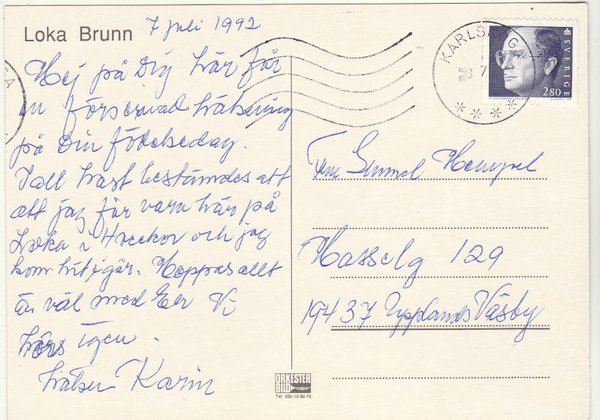 Loka Brunn 7 juli 1992
Hej på Dig här får
en försenad hälsning
på Din födelsedag.
I all hast bestämdes att
att jag får vara här på
Loka 2 Veckor och jag
kom hit igår. Hoppas allt
är väl med Eer Vi
hörs igen.
hälsn Karin
KARLSKOGA
7
SVERIGE
2.80
Fru Gunmel Hempel
Hasselg 129
194 37 Upplands Väsby
ORKESTER
Tel.